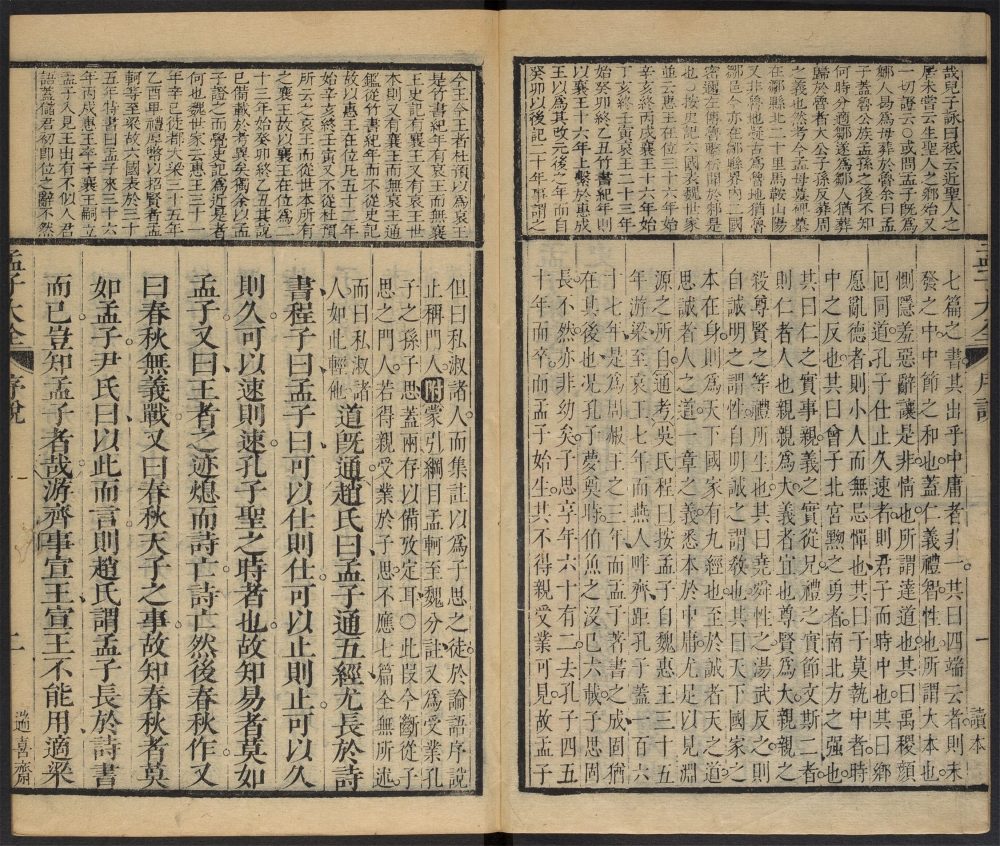 哉兒子詠曰祗云近聖人之
居未嘗云生聖人之鄉始又
一切證云○或問孟子既為
鄒人曷為母葬於魯余曰孟
子蓋魯公族孟孫之後不知
何時分適鄒遂為鄒人猶葬
歸於魯者大公子孫反葬周
之義也然考今孟母墓碑墓
在鄒縣北二十里馬鞍山陽
又非魯地疑古為魯地猶魯
鄹邑今亦在鄒縣界內二國
密邇左傳魯擊柝聞於邾是
也○按史記六國表魏世家
並云惠王在位三十六年始
辛亥終丙戌襄王十六年始
丁亥終壬寅哀王二十三年
始癸卯終乙丑竹書紀年則
以襄王十六年上繫於惠成
王以為其改元後之年而自
癸卯以後記二十年事謂之
七篇之書其出乎中庸者非一其曰四端云者則未
發之中中節之和也蓋仁義禮智性也所謂大本也
惻隱羞惡辭讓是非情也所謂達道也其曰禹稷顏
回同道孔子仕止久速者則君子而時中也其曰鄉
愿亂德者則小人而無忌憚也其曰子莫執中者時
中之反也其曰曾子北宮黝之勇者南北方之強也
其曰仁之實事親義之實從兄禮之實節文斯二者
則仁者人也親親為大義者宜也尊賢為大親親之
殺尊賢之等禮所生也其曰堯舜性之湯武反之則
自誠明之謂性自明誠之謂教也其曰天下國家之
本在身則為天下國家有九經也至於誠者天之道
思誠者人之道一章之義悉本於中庸尤足以見淵
源之所自通考吳氏程曰按孟子自魏惠王三十五
年游梁至哀王七年而燕人畔齊距孔子蓋一百六
十七年是為周赧王之三年而孟子著書之成固猶
在其後也况孔子夢奠時伯魚之沒已六載子思固
長不然亦非幼矣子思享年六十有二去孔子四五
十年而卒而孟子始生其不得親受業可見故孟子
孟子大全 序說 一 讀本
今王今王者杜預以為哀王
是竹書紀年有哀王而無襄
王史記有襄王又有哀王世
本則又有襄王而無哀王通
鑑從竹書紀年而不從史記
故以惠王在位凡五十二年
始辛亥終壬寅又不從杜預
所云之哀王而從世本所有
之襄王故以襄王在位為二
十三年始癸卯終乙丑其說
已備載於考異矣篤余以孟
子證之而覺史記為近是者
何也魏世家云惠王三十一
年辛巳徙都大梁三十五年
乙酉卑禮厚幣以招賢者孟
軻等至梁故六國表於三十
五年特書曰孟子來三十六
年丙戌惠王卒子襄王嗣立
孟子入見王出有不似人君
語蓋儲君初卽位之辭不然
但曰私淑諸人而集註以為子思之徒於論語序說
止稱門人附蒙引綱目孟軻至魏分註又為受業孔
子之孫子思蓋兩存以備攷定耳○此叚今斷從子
思之門人若得親受業於子思不應七篇全無所述
而曰私淑諸
人如此輕他道旣通趙氏曰孟子通五經尤長於詩
書程子曰孟子曰可以仕則仕可以止則止可以久
則久可以速則速孔子聖之時者也故知易者莫如
孟子又曰王者之迹熄而詩亡詩亡然後春秋作又
曰春秋無義戰又曰春秋天子之事故知春秋者莫
如孟子尹氏曰以此而言則趙氏謂孟子長於詩書
而已豈知孟子者哉游齊事宣王宣王不能用適梁
孟子大全 序說 二